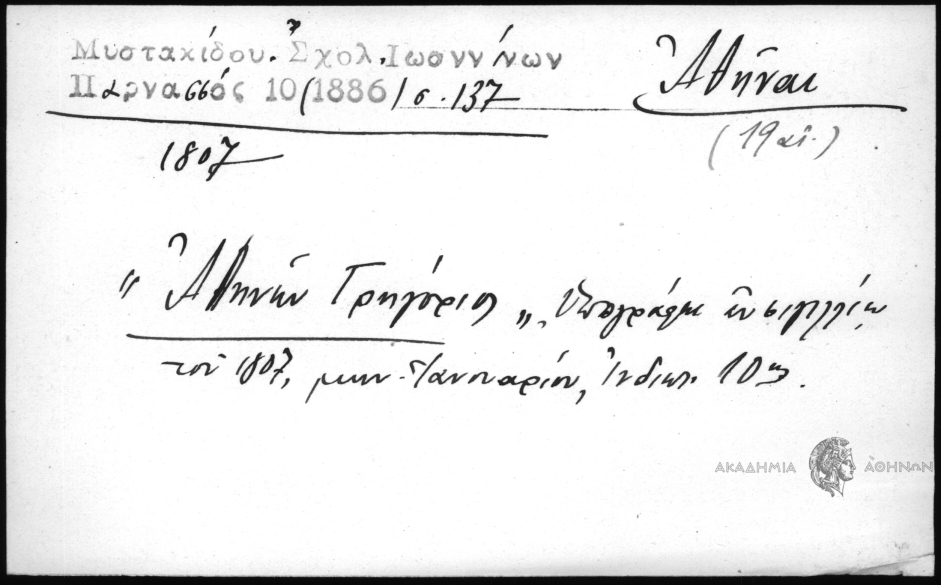 Μυστακίδου. Σχολ. Ιωαννίνων
Παρνασσός 10 (1886) σ. 137
Ἀθῆναι
(19 αἰ.)
1807
"Ἀθηνῶν Γρηγόριος" Ὑπογράφει ἐν σιγιλλίῳ
τοῦ 1807, μην. Ἰανουαρίου, Ἰνδικτ. 10ης.
ΑΚΑΔΗΜΙΑ ΑΘΗΝΩΝ